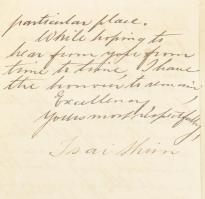 particular place.
While hoping to
hear from you from
time to time, I have
the honour to remain,
Excellency,
Yours most respectfully,
Tsai Shun